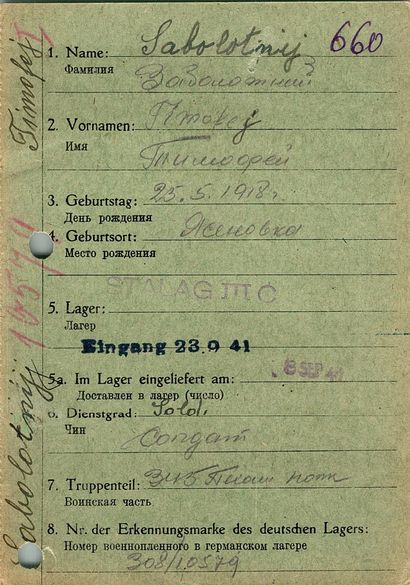 1. Name: Sabolotnij 660
Фамилия Заболотний
2. Vornamen: Timofej
Имя Тимофей
3. Geburtstag: 25.5.1918 г.
День рождения
4. Geburtsort: Ясеновка
Место рождения
STALAG III C
5. Lager:
Лагер
Eingang 23.9 41
5a. Im Lager eingeliefert am: 8 SEP 41
Доставлен в лагер (число)
6. Dienstgrad: Sold.
Чин Солдат
7. Truppenteil: 345
Воинская часть
8. Nr. der Erkennungsmarke des deutschen Lagers:
Номер военнопленного в германском лагере
308/10579
Sabolotnij 10579 Timofej I